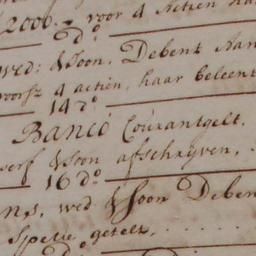 2000. - voor 4 Actien
do
wed: & Soon. Debent Aan
voorsz 4 actien, haar beleent
14 do
Banco Courantgelt.
werf & Soon afschrijven.
16 do
wed & Soon Deben
Specie getelt,